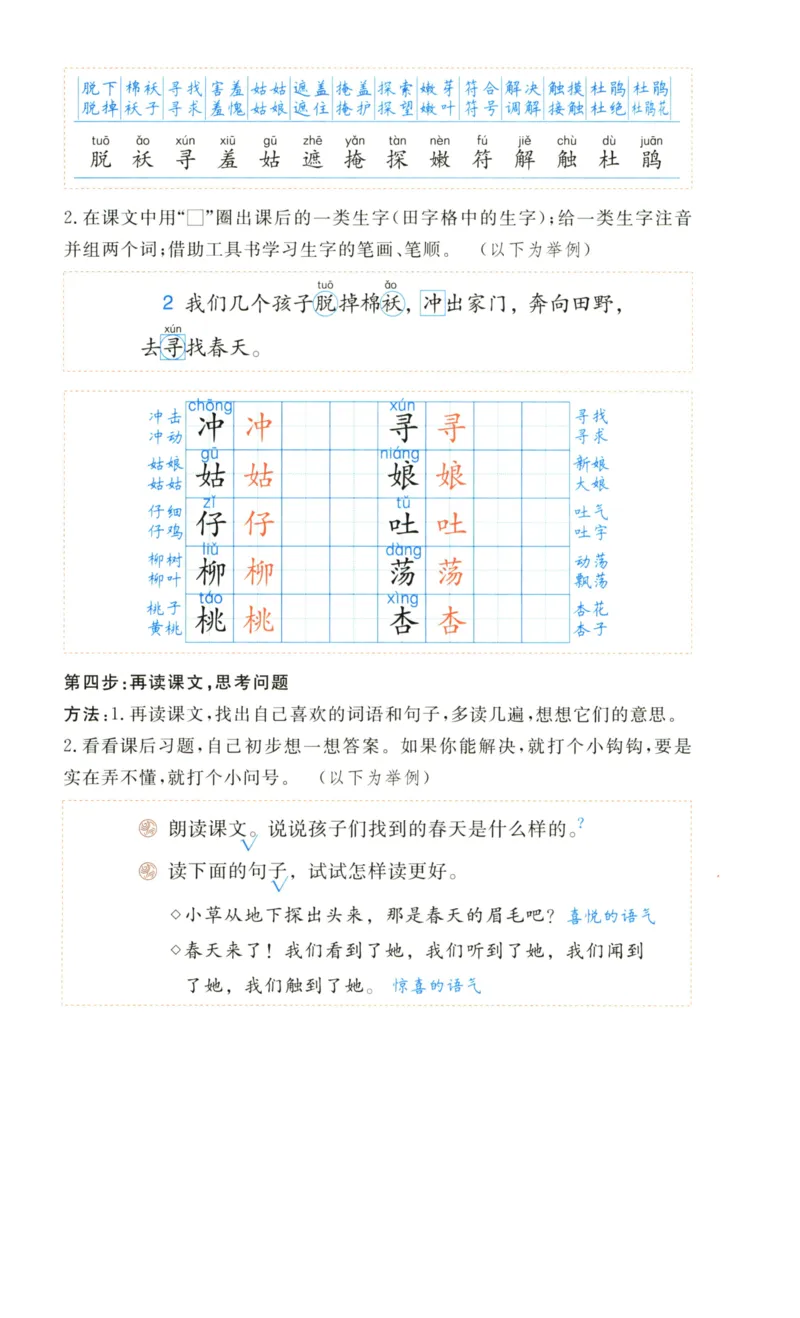 脱下 棉袄 寻找 害羞 姑姑 遮盖 掩盖 探索 嫩芽 符合 解决 触摸 杜鹃 杜鹃
脱掉 袄子 寻求 羞愧 姑娘 遮住 掩护 探望 嫩叶 符号 调解 接触 杜绝 杜鹃花
tuō ǎo xún xiū gū zhē yǎn tàn nèn fú jiě chù dù juān
脱 袄 寻 羞 姑 遮 掩 探 嫩 符 解 触 杜 鹃
2. 在课文中用“□”圈出课后的一类生字(田字格中的生字);给一类生字注音
并组两个词;借助工具书学习生字的笔画、笔顺。 (以下为举例)
tuō ǎo
2 我们几个孩子脱掉棉袄,冲出家门,奔向田野,
xún
去寻找春天。
chōng xún
冲击 冲 冲 寻 寻 寻找
冲动 寻求
gū niáng
姑娘 姑 姑 娘 娘 新娘
姑姑 大娘
zǐ tǔ
仔细 仔 仔 吐 吐 吐气
仔鸡 吐字
liǔ dàng
柳树 柳 柳 荡 荡 动荡
柳叶 飘荡
táo xìng
桃子 桃 桃 杏 杏 杏花
黄桃 杏子
第四步:再读课文,思考问题
方法:1. 再读课文,找出自己喜欢的词语和句子,多读几遍,想想它们的意思。
2. 看看课后习题,自己初步想一想答案。如果你能解决,就打个小钩钩,要是
实在弄不懂,就打个小问号。 (以下为举例)
朗读课文。说说孩子们找到的春天是什么样的。?
√
读下面的句子,试试怎样读更好。
√
◇小草从地下探出头来,那是春天的眉毛吧? 喜悦的语气
◇春天来了!我们看到了她,我们听到了她,我们闻到
了她,我们触到了她。 惊喜的语气